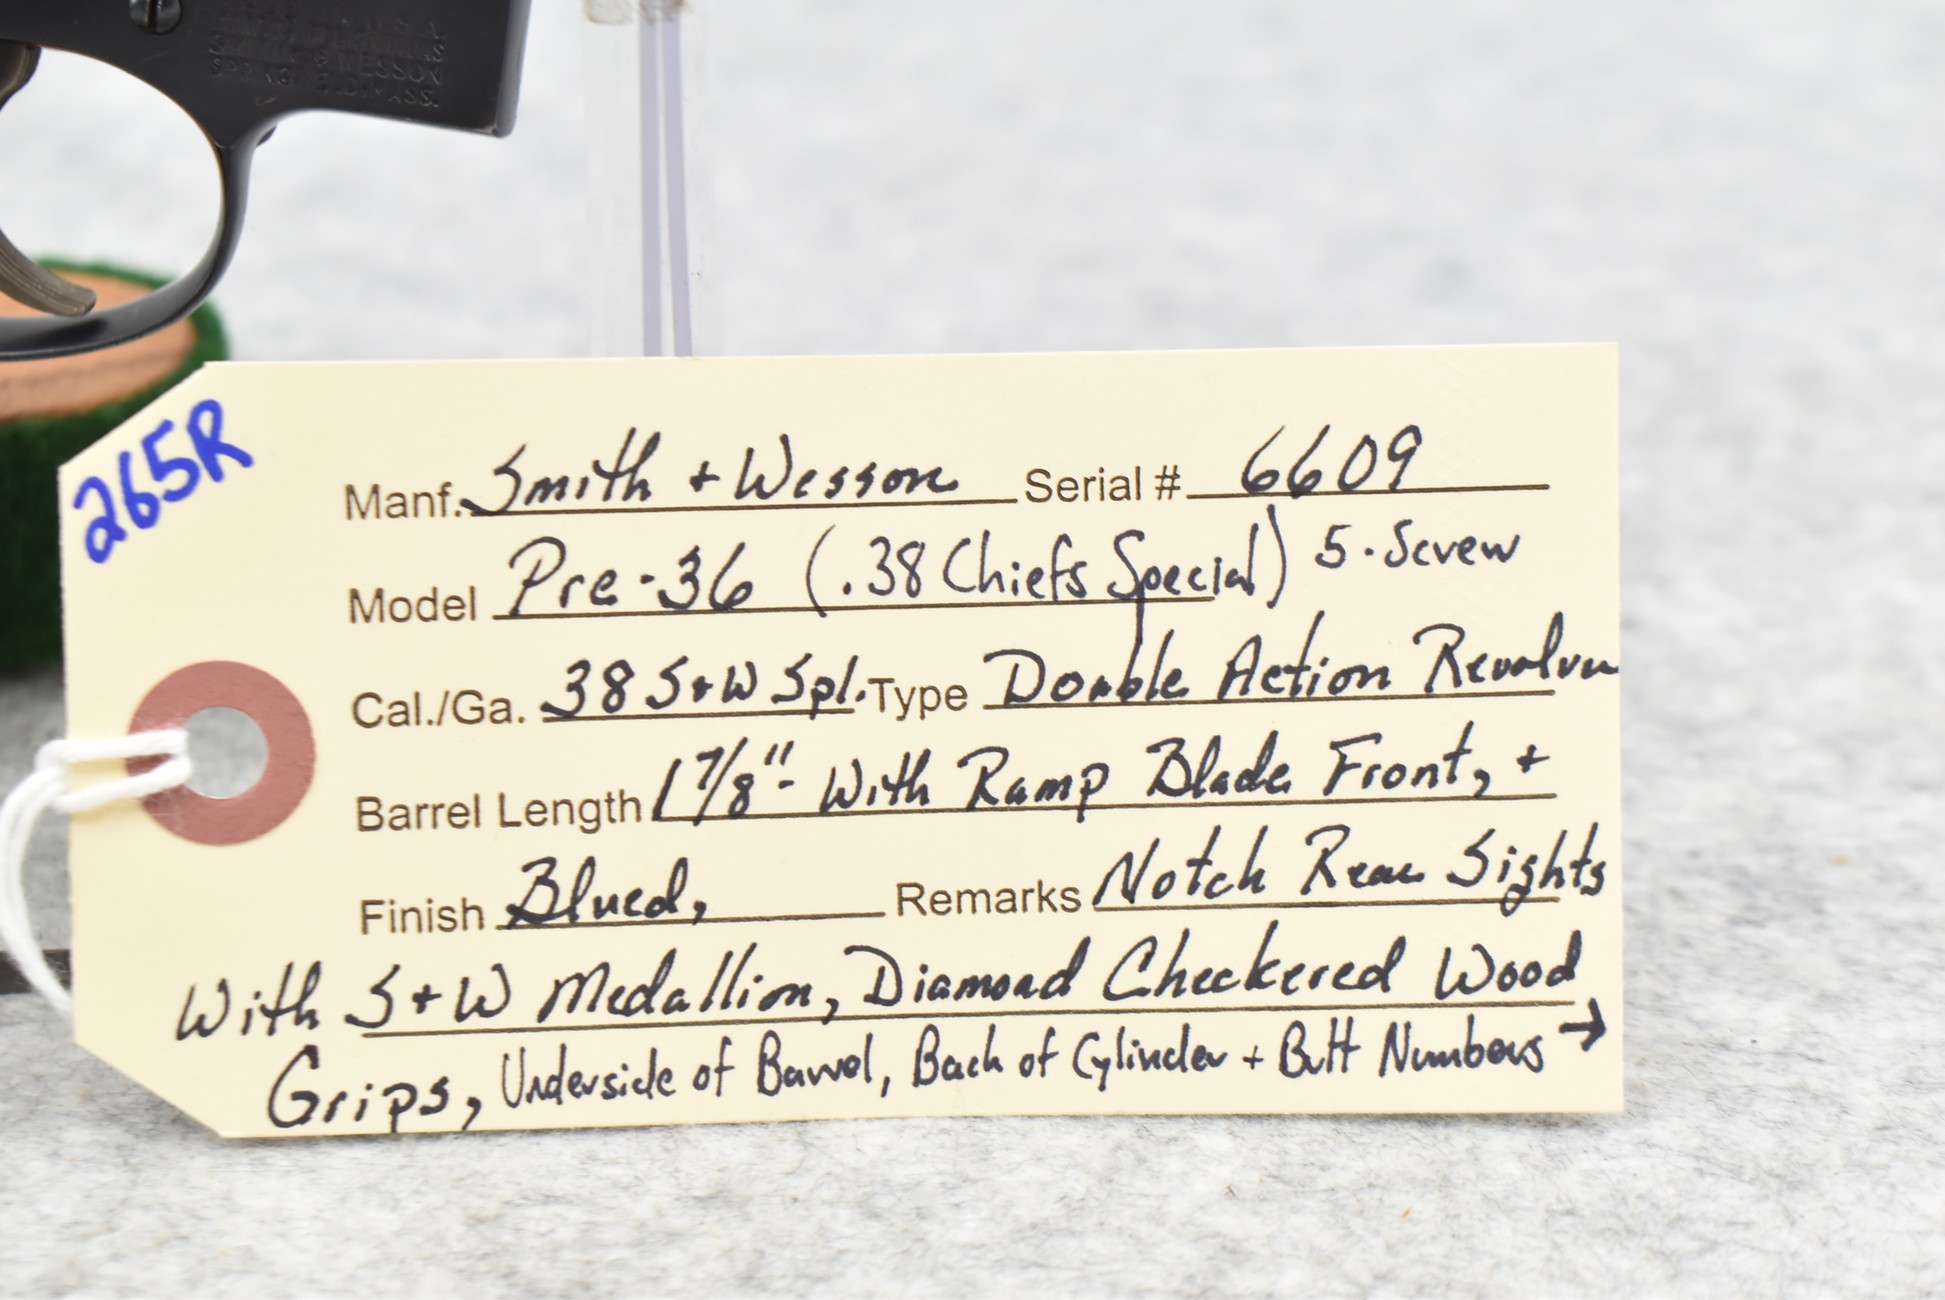 & WESSON
SPRINGFIELD, MASS.
265R
Manf. Smith + Wesson Serial # 6609
Model Pre-36 (.38 Chiefs Special) 5-Screw
Cal./Ga. 38 S+W Spl. Type Double Action Revolver
Barrel Length 1 7/8" - With Ramp Blade Front, +
Finish Blued, Remarks Notch Rear Sights
With S+W Medallion, Diamond Checkered Wood
Grips, Underside of Barrel, Back of Cylinder + Butt Numbers →